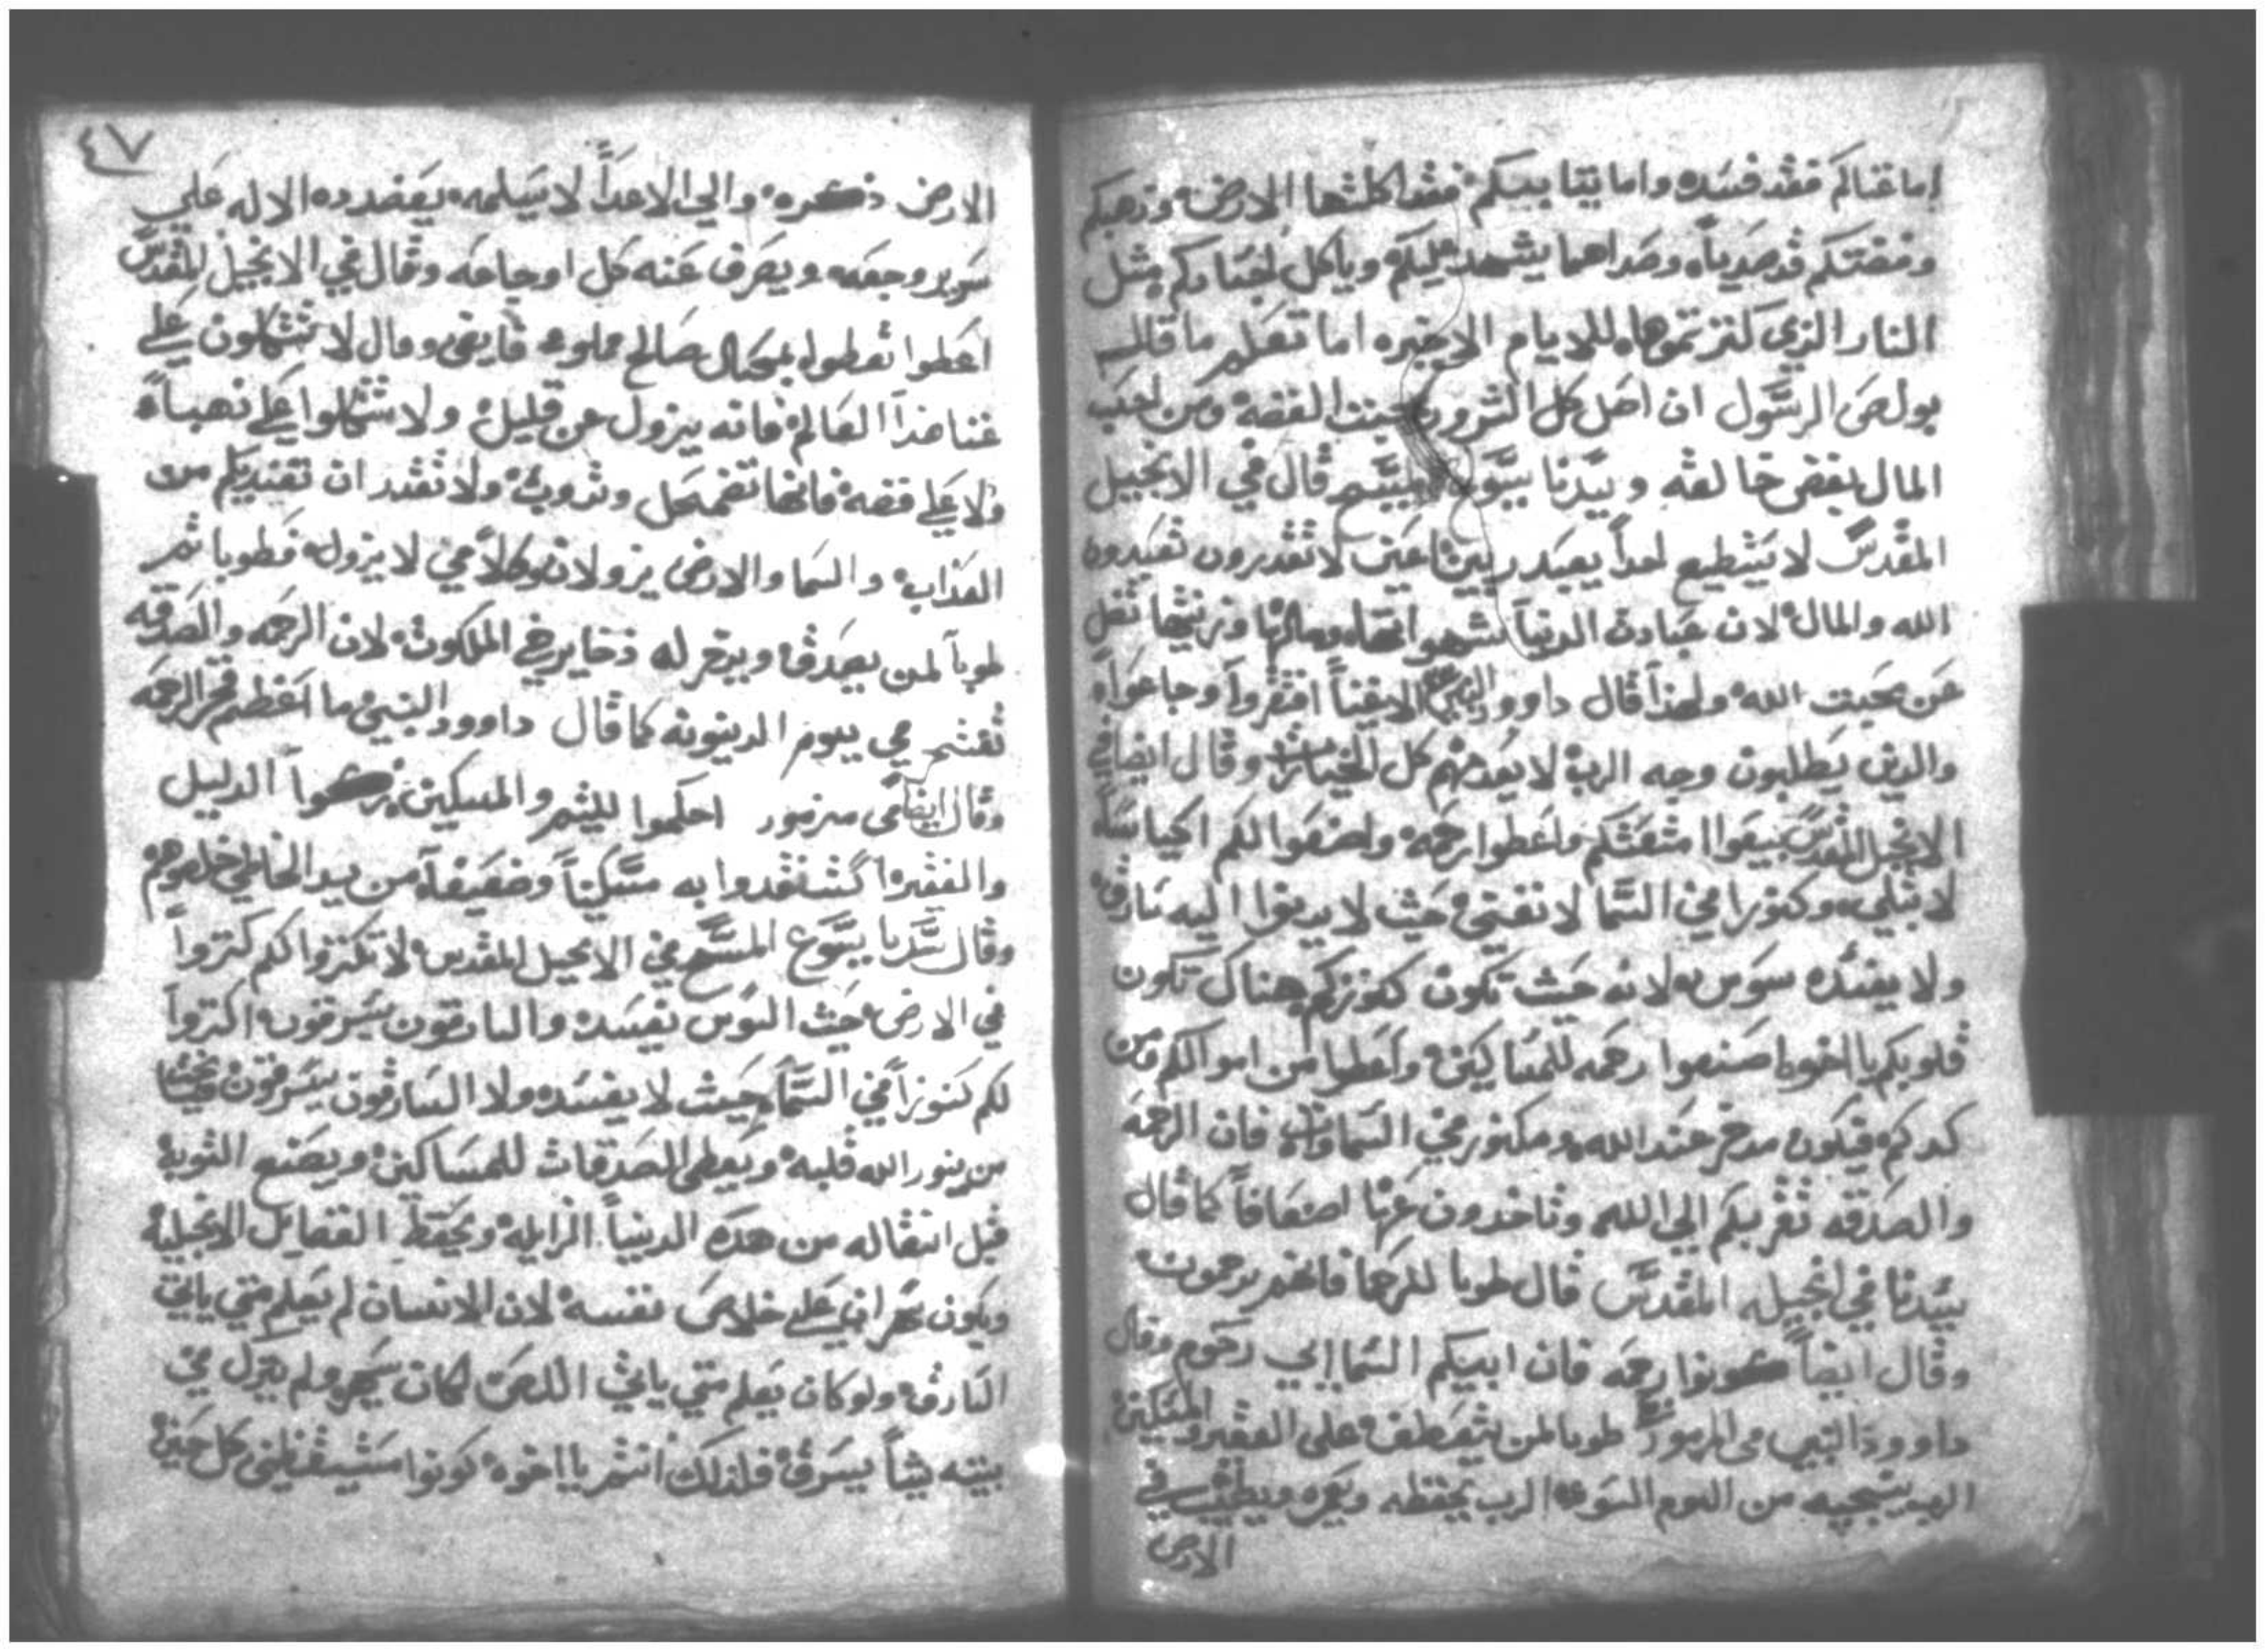 اما غناكم فقد فسده واما بقا بيبكم فقد اكلتها الارض وذهبكم
وفضتكم قد صدياه وصداهما يشهد عليكم وياكل اجسادكم مثل
النار الذي كنزتموها للايام الاخيره اما تعلم ما قال
بولص الرسول ان اصل كل الشرور محبت الفضه ومن احب
المال يبغض خالقه وسيدنا يسوع المسيح قال في الانجيل
المقدس لا يستطيع احداً يعبد ربين لا تقدرون تعبدون
الله والمال لان عبادة الدنيا وزينتها
عن محبت الله ولهذا قال داوود النبي الاغنياً افتقرواً وجاعواً
والدين يطلبون وجه الرب لا يعدمهم كل الخيرات وقال ايضا في
الانجيل المقدس بيعوا امتعتكم واعطوا رحمه واصنعوا لكم اكياسا
لا تبلي وكنوزا في السما لا تفني حيث لا يدنوا اليه سارق
ولا يفسده سوس لانه حيث تكون كنوزكم هناك تكون
قلوبكم يا اخوه اصنعوا رحمه للمساكين واعطوا من اموالكم ومن
كدكم فيكون مدخر عند الله ومكنوز في السماوات فان الرحمه
والصدقه تقربكم الي الله وتاخدون عوضها اضعافاً كما قال
سيدنا في انجيله المقدس قال طوبا للرحما فانهم يرحمون
وقال ايضاً كونوا رحمه فان ابيكم السماإي رحوم وقال
داوود النبي في المزمور طوبا لمن يتعطف على الفقير والمسكين
الرب ينجيه من اليوم السوء الرب يحفظه ويطيب في
الارض
٤٧
الارض ذكره والي الاعداً لا يسلمه يعضده الاله علي
سرير وجعه ويصرف عنه كل اوجاعه وقال في الانجيل المقدس
اعطوا تعطوا بمكيال صالح مملوء فايض وقال لا تتكلون علي
غنا هذا العالم فانه يزول عن قليل ولا تتكلوا علي ذهباً
ولا علي فضه فانها تضمحل وتدوب ولا تقدر ان تفنديكم من
العذاب والسما والارض يزولان وكلامي لا يزول فطوبا ثم
طوبا لمن يصدق ويدخر له ذخاير في الملكوت لان الرحمه والصدقه
تفتخر في يوم الدينونه كما قال داوود النبي ما اعظم فخر الرحمه
وقال ايضا في مزمور احكموا لليتيم والمسكين زكوا الدليل
والفقير استنقدوا به مسكيناً وضعيفاً من يد الخاطي خلصوهم
وقال سيدنا يسوع المسيح في الانجيل المقدس لا تكنزوا لكم كنزواً
في الارض حيث السوس يفسده والسارقون يسرقون اكنزواً
لكم كنوزاً في السماء حيث لا يفسده ولا السارقون يسرقون
من ينور الله قلبه ويعطي الصدقات للمساكين ويصنع التوبه
قبل انتقاله من هده الدينا الزايله ويحفظ الفضايل الانجيليه
ويكون علي خلاص نفسه لان الانسان لم يعلم متي ياتي
السارق ولو كان يعلم متي ياتي اللص لكان سهر ولم ينزل في
بيته شياً يسرق فلذلك انتم يا اخوه كونوا مستيقظين كل حين